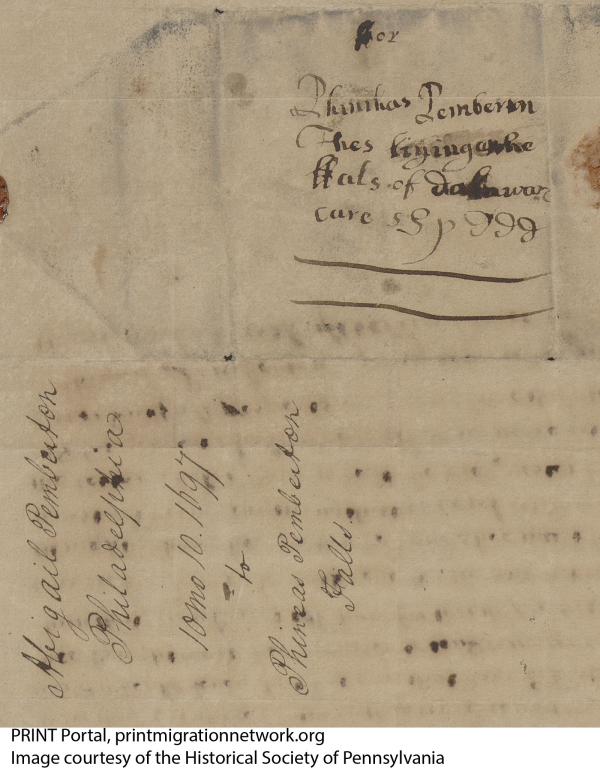 For
Phinihas Pemberton
Thes
ffals of
care
Abigail Pemberton
Philadelphia
10mo 10. 1697
to
Phineas Pemberton
Falls
PRINT Portal, printmigrationnetwork.org
Image courtesy of the Historical Society of Pennsylvania